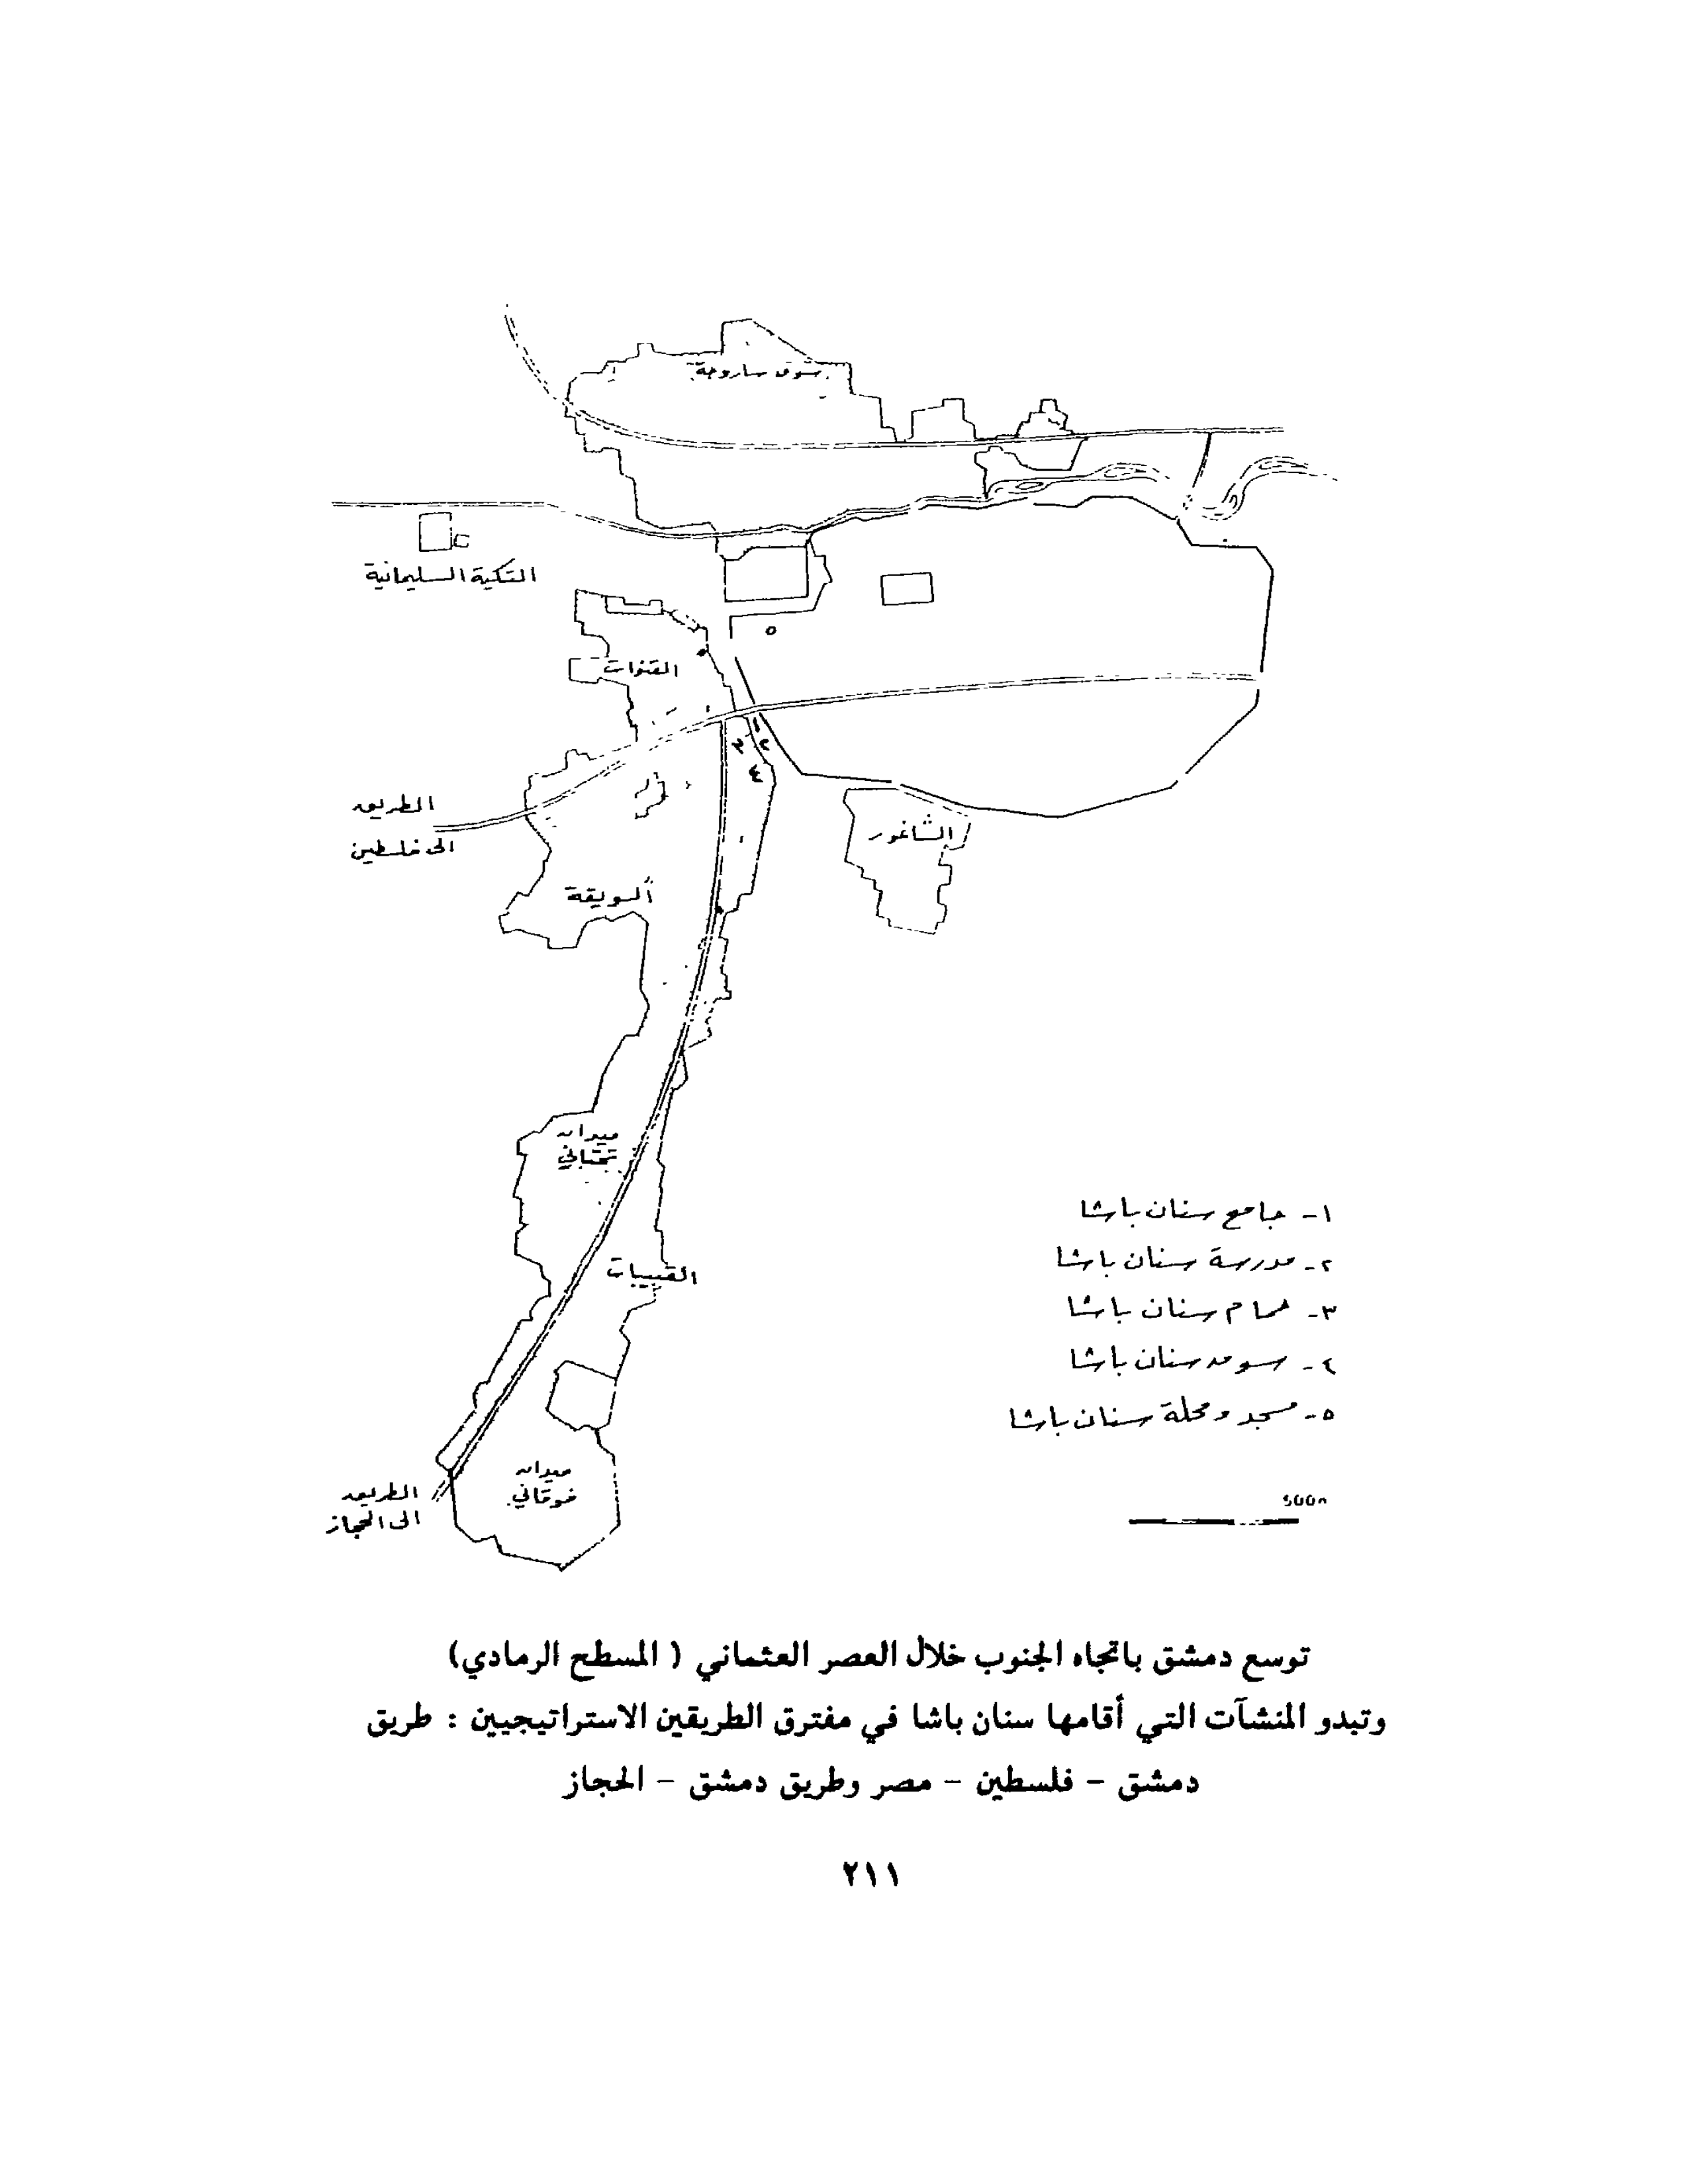 سوق ساروجة
التكية السليمانية
القنوات
٥
٣ ٢
٤
الطريق
الى فلسطين
الشاغور
السويقة
ميدان
تحتاني
القبيبات
ميدان
فوقاني
الطريق
الى الحجاز
١- جامع سنان باشا
٢- مدرسة سنان باشا
٣- حمام سنان باشا
٤- سوق سنان باشا
٥- مسجد ومحلة سنان باشا
500m
توسع دمشق باتجاه الجنوب خلال العصر العثماني ( المسطح الرمادي)
وتبدو المنشآت التي أقامها سنان باشا في مفترق الطريقين الاستراتيجيين : طريق
دمشق - فلسطين - مصر وطريق دمشق - الحجاز
٢١١